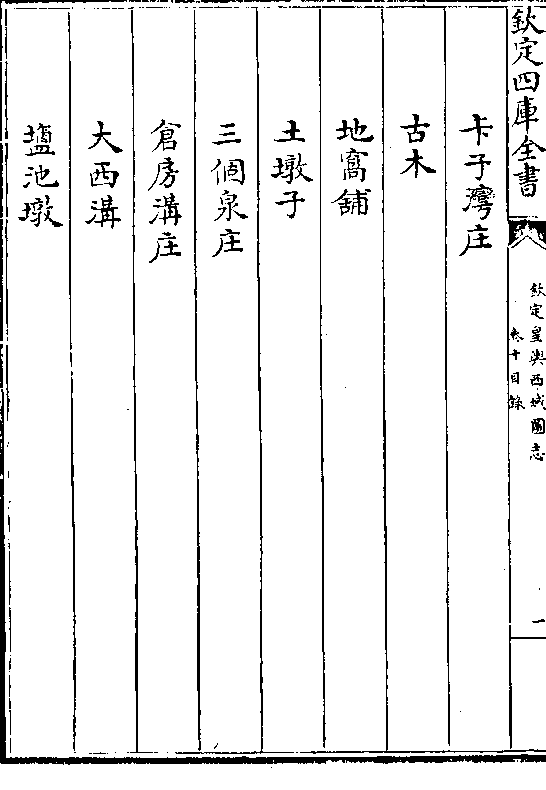 欽定四庫全書
欽定皇輿西域圖志
卷十目錄
一
卡子灣庄
古木
地窩舖
土墩子
三個泉庄
倉房溝庄
大西溝
鹽池墩